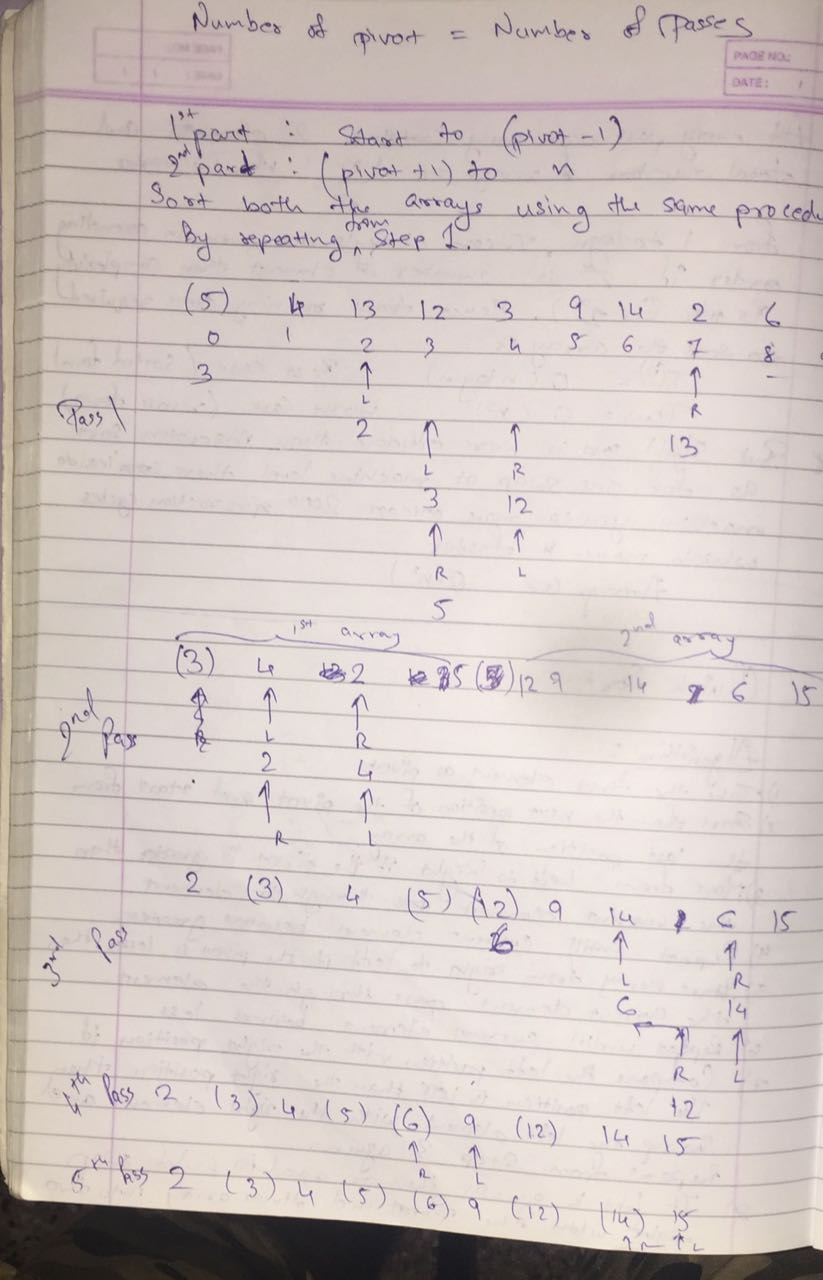 Number of pivot = Number of Passes
PAGE NO.:
DATE:
1st part : Start to (pivot - 1)
2nd part : (pivot + 1) to n
Sort both the arrays using the same procedu
By repeating from Step 1.
(5) 4 13 12 3 9 14 2 6
0 1 2 3 4 5 6 7 8
3 ↑ ↑
L R
Pass 1 2 ↑ ↑ 13
L R
3 12
↑ ↑
R L
5
1st array 2nd array
(3) 4 2 5 12 9 14 6 15
2nd Pass ↑ ↑ ↑
R L R
2 4
↑ ↑
R L
2 (3) 4 (5) (12) 9 14 6 15
3rd Pass 6 ↑ ↑
L R
6 14
↑ ↑
R L
12
4th Pass 2 (3) 4 (5) (6) 9 (12) 14 15
↑ ↑
R L
5th Pass 2 (3) 4 (5) (6) 9 (12) (14) 15
↑R ↑L